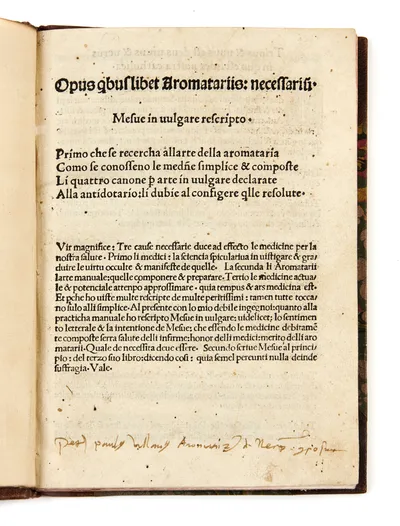 Opus qbuslibet Aromatariis: necessariũ.
Mesue in uulgare rescripto.
Primo che se recercha allarte della aromataria
Como se conosseno le medñe simplice & composte
Li quattro canone p arte in uulgare declarate
Alla antidotario: li dubie al configere qlle resolute.
Vir magnifice: Tre cause necessarie duce ad effecto le medicine per la
nostra salute. Primo li medici: la sciencia spiculatiua in uistigare & gra
duire le uirtu occulte & manifeste de quelle. La secunda li Aromatarii
latte manuale: quelle componere & preparare. Tertio le medicine actua
le & potenciale attempo approssimate: quia tempus & ars medicina est.
Et pche ho uiste multe rescripte de multe peritissimi: tamen tutte tocca
no sulo alli simplice. Al presente con lo mio debile ingegno: quanto alla
practicha manuale ho rescripto Mesue in uulgare: uidelicet: lo sentimen
to letterale & la intentione de Mesue: che essendo le medicine debitamẽ
te composte serra salute delli infirme: honor delli medici: merito delli aro
matarii. Quale de necessita deue essere. Secundo scriue Mesue al princi
pio: del terzo suo libro: dicendo cosi: quia semel pereunti nulla deinde
suffragia. Vale.